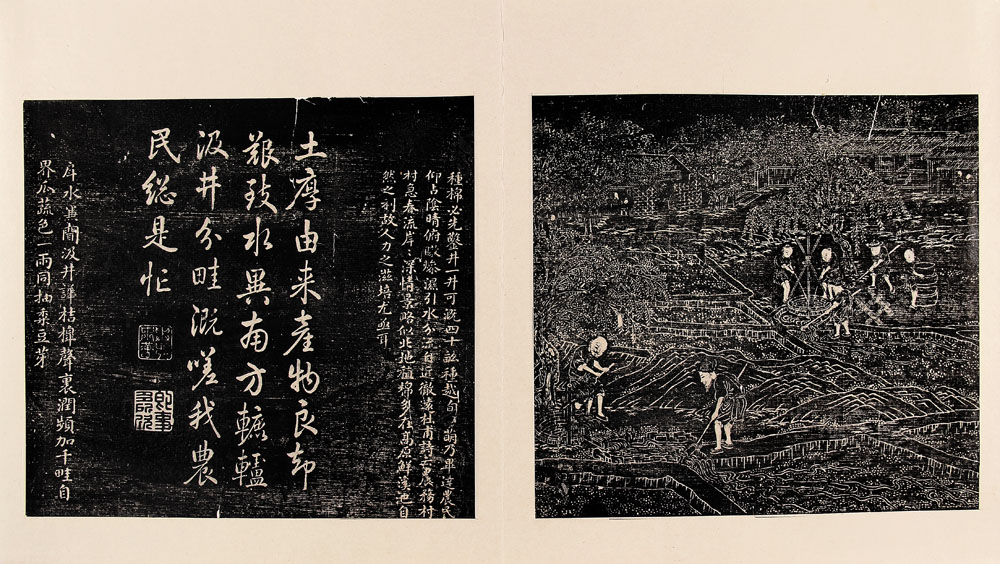 種棉必先鑿井一井可溉四十畝種越旬日萌乃畢達農民
仰占陰晴俯瞰燥濕引水分流自近徹遠杜甫詩云農務村
村急春流岸岸深情景略似北地植棉多在高原鮮溪池自
然之利故人力之滋培尤亟耳
土厚由来產物良却
艱致水異南方轆轤
汲井分畦溉嗟我農
民總是忙
戽水閒汲井譁桔槔聲裏潤頻加千畦自
界瓜蔬色一雨同抽黍豆芽